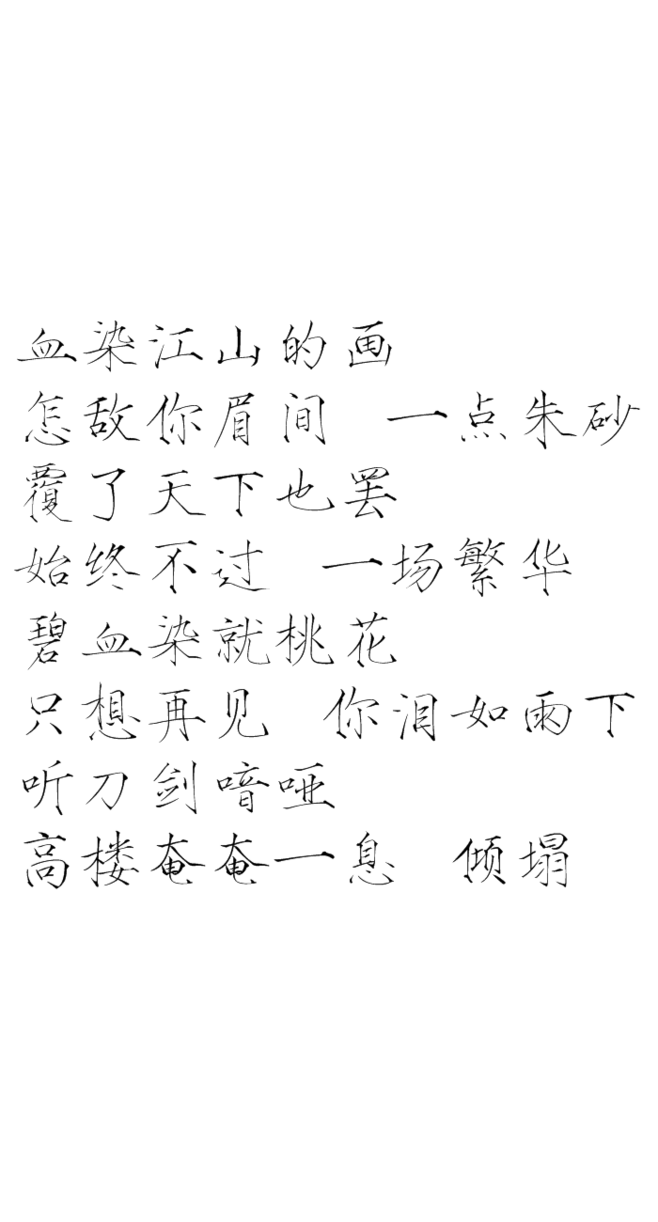 血染江山的画
怎敌你眉间 一点朱砂
覆了天下也罢
始终不过 一场繁华
碧血染就桃花
只想再见 你泪如雨下
听刀剑喑哑
高楼奄奄一息 倾塌